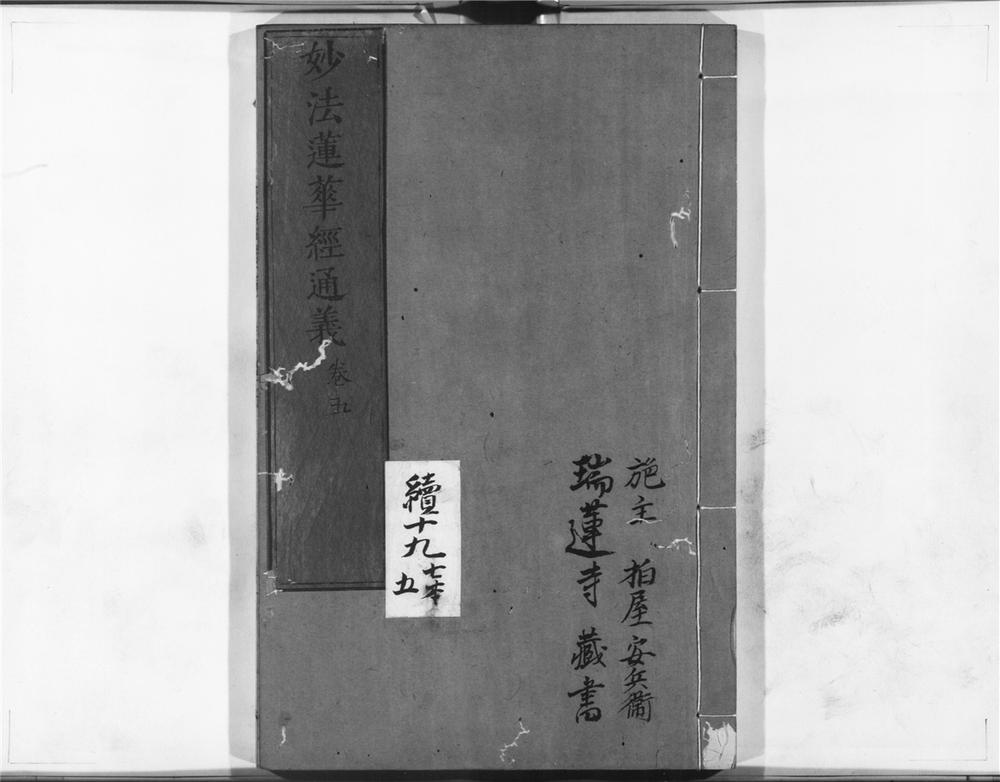 施主 柏屋安兵衞
瑞蓮寺藏書
續十九 七本
五
妙法蓮華經通義 卷五